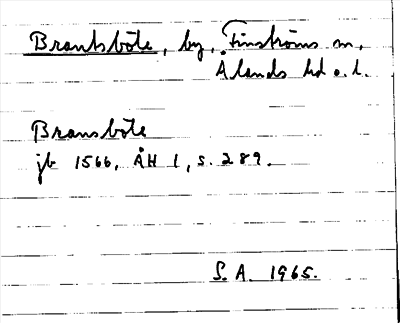 Brantsböte, by, Finströms sn,
Ålands hd o. l.
Bransböte
jb 1566, ÅH 1, s. 289.
S. A. 1965.